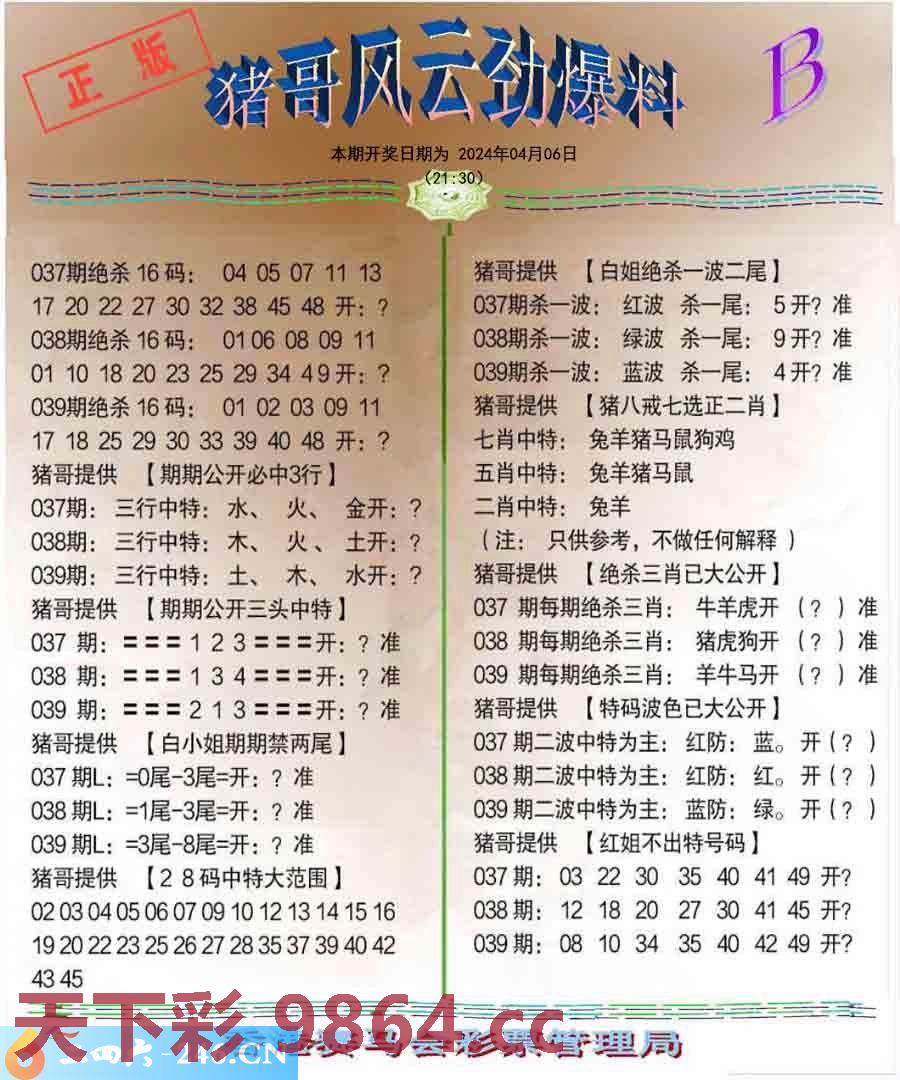 正版
猪哥风云劲爆料
B
本期开奖日期为 2024年04月06日
(21:30)
037期绝杀16码： 04 05 07 11 13
17 20 22 27 30 32 38 45 48 开：?
038期绝杀16码： 01 06 08 09 11
01 10 18 20 23 25 29 34 49开：?
039期绝杀16码： 01 02 03 09 11
17 18 25 29 30 33 39 40 48 开：?
猪哥提供 【期期公开必中3行】
037期：三行中特：水、 火、 金开：?
038期：三行中特：木、 火、 土开：?
039期：三行中特：土、 木、 水开：?
猪哥提供 【期期公开三头中特】
037 期：===123===开：? 准
038 期：===134===开：? 准
039 期：===213===开：? 准
猪哥提供 【白小姐期期禁两尾】
037期L：=0尾-3尾=开：? 准
038期L：=1尾-3尾=开：? 准
039期L：=3尾-8尾=开：? 准
猪哥提供 【28码中特大范围】
02 03 04 05 06 07 09 10 12 13 14 15 16
19 20 22 23 25 26 27 28 35 37 39 40 42
43 45
猪哥提供 【白姐绝杀一波二尾】
037期杀一波： 红波 杀一尾： 5开? 准
038期杀一波： 绿波 杀一尾： 9开? 准
039期杀一波： 蓝波 杀一尾： 4开? 准
猪哥提供 【猪八戒七选正二肖】
七肖中特： 兔羊猪马鼠狗鸡
五肖中特： 兔羊猪马鼠
二肖中特： 兔羊
（注： 只供参考，不做任何解释）
猪哥提供 【绝杀三肖已大公开】
037 期每期绝杀三肖： 牛羊虎开 （?）准
038 期每期绝杀三肖： 猪虎狗开 （?）准
039 期每期绝杀三肖： 羊牛马开 （?）准
猪哥提供 【特码波色已大公开】
037期二波中特为主：红防：蓝。开(?)
038期二波中特为主：红防：红。开(?)
039期二波中特为主：蓝防：绿。开(?)
猪哥提供 【红姐不出特号码】
037期： 03 22 30 35 40 41 49 开?
038期： 12 18 20 27 30 41 45 开?
039期： 08 10 34 35 40 42 49 开?
天下彩.9864.cc
二四六-246.CN
赛马会彩票管理局